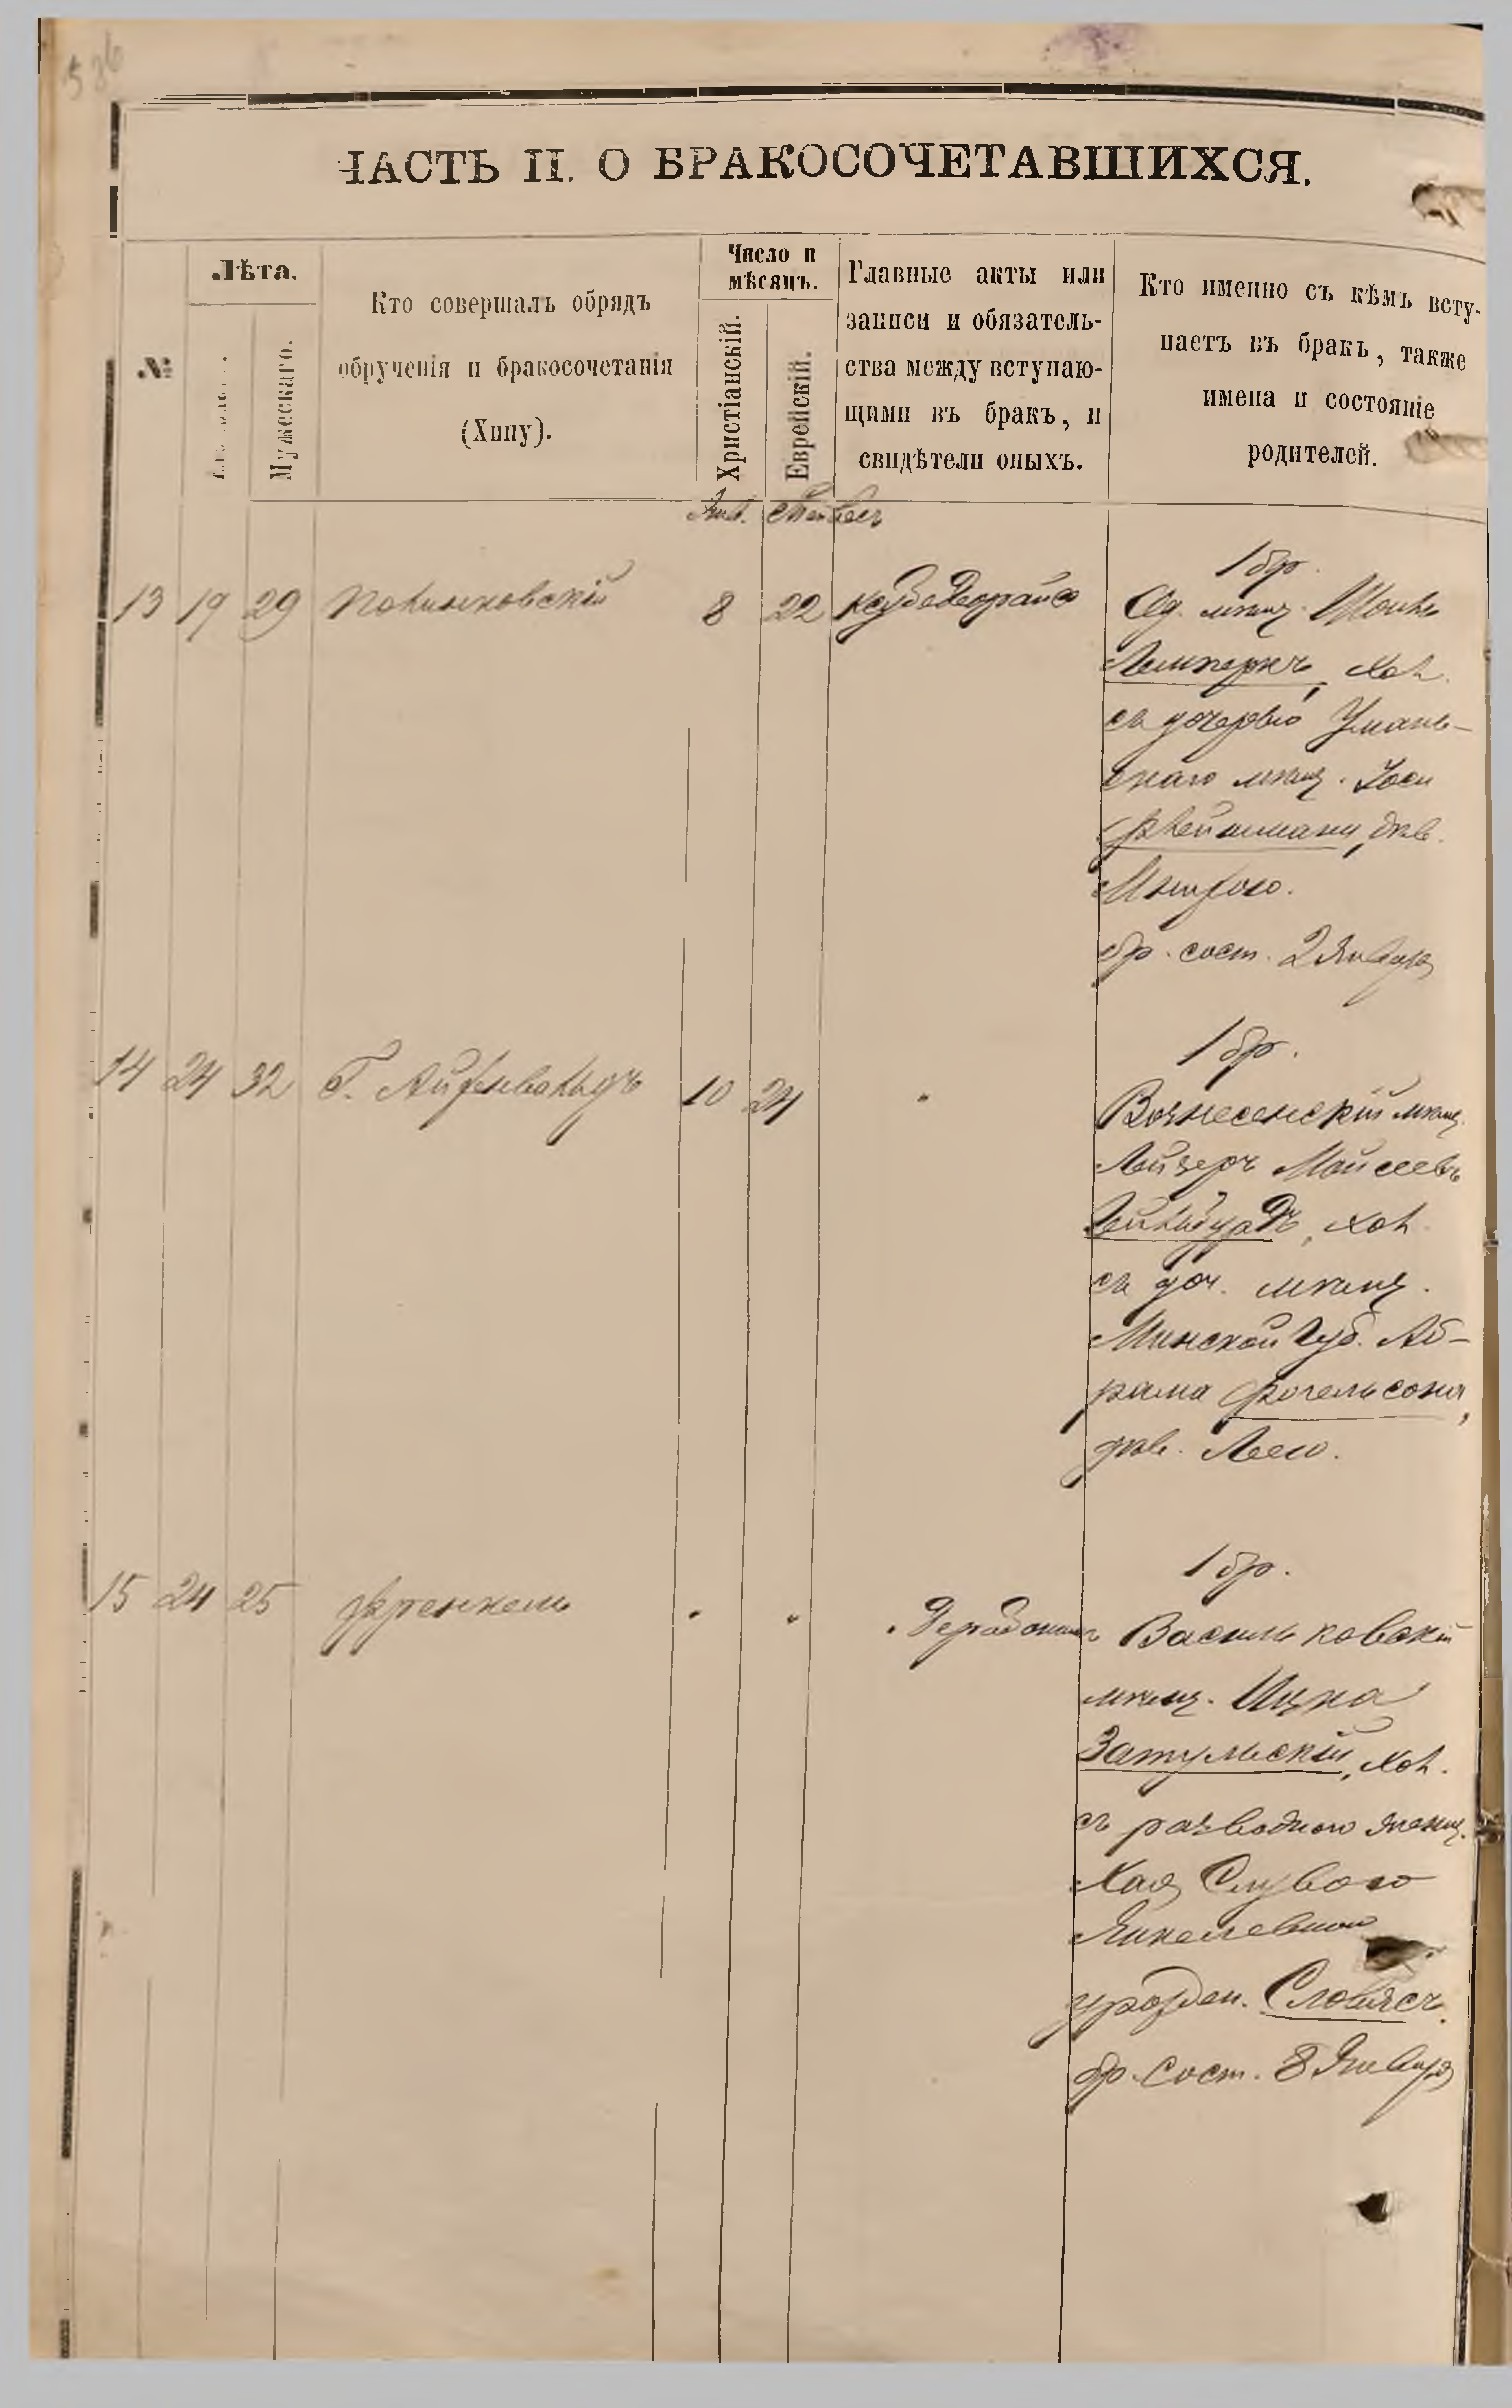 ЧАСТЬ II. О БРАКОСОЧЕТАВШИХСЯ.
№
Лѣта.
Мужескаго.
Кто совершалъ обрядъ
обрученія и бракосочетанія
(Хипу).
Число и
мѣсяцъ.
Христіанскій.
Еврейскій.
Главные акты или
записи и обязатель-
ства между вступаю-
щими въ бракъ, и
свидѣтели оныхъ.
Кто именно съ кѣмъ всту-
паетъ въ бракъ, также
имена и состояніе
родителей.
Янв.
13 19 29 Полинковскій 8 22
1 бр.
Од. мѣщ.
Лемперть, хол.
съ дочерью Умань-
скаго мѣщ. Іося
Флейшмана, дѣв.
бр. сост. 2 Января
14 24 32 Г. Айзенвальдъ 10 24 "
1 бр.
Вознесенскій мѣщ.
Лейзеръ Мойсеевъ
хол.
съ доч. мѣщ.
Минской губ. Аб-
рама Фогельсона,
дѣв. Леею.
15 24 25 Френкель " "
1 бр.
Васильковскій
мѣщ. Ицко
Затульскій, хол.
съ разводною женщ.
Хая Слувою
Янкелевною
урожден. Словясъ.
бр. сост. 8 Января